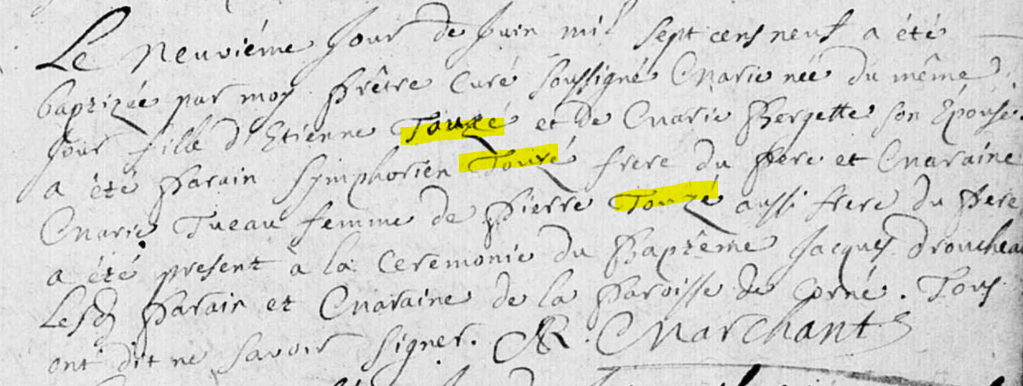 Le Neuviéme Jour de Juin mil sept cens neuf a été
baptizée par moy Prêtre Curé soussigné Marie née du même
Jour fille d'Etienne Touzé et de Marie Bergette son Epouse.
a été Parain Symphorien Touzé frere du Pere et Maraine
Marie Tueau femme de Pierre Touzé aussi frere du Pere
a été present à la Ceremonie du Baptême Jacques Droucheau
Lesd Parain et Maraine de la Paroisse de Corné. Tous
ont dit ne savoir signer. R. Marchant